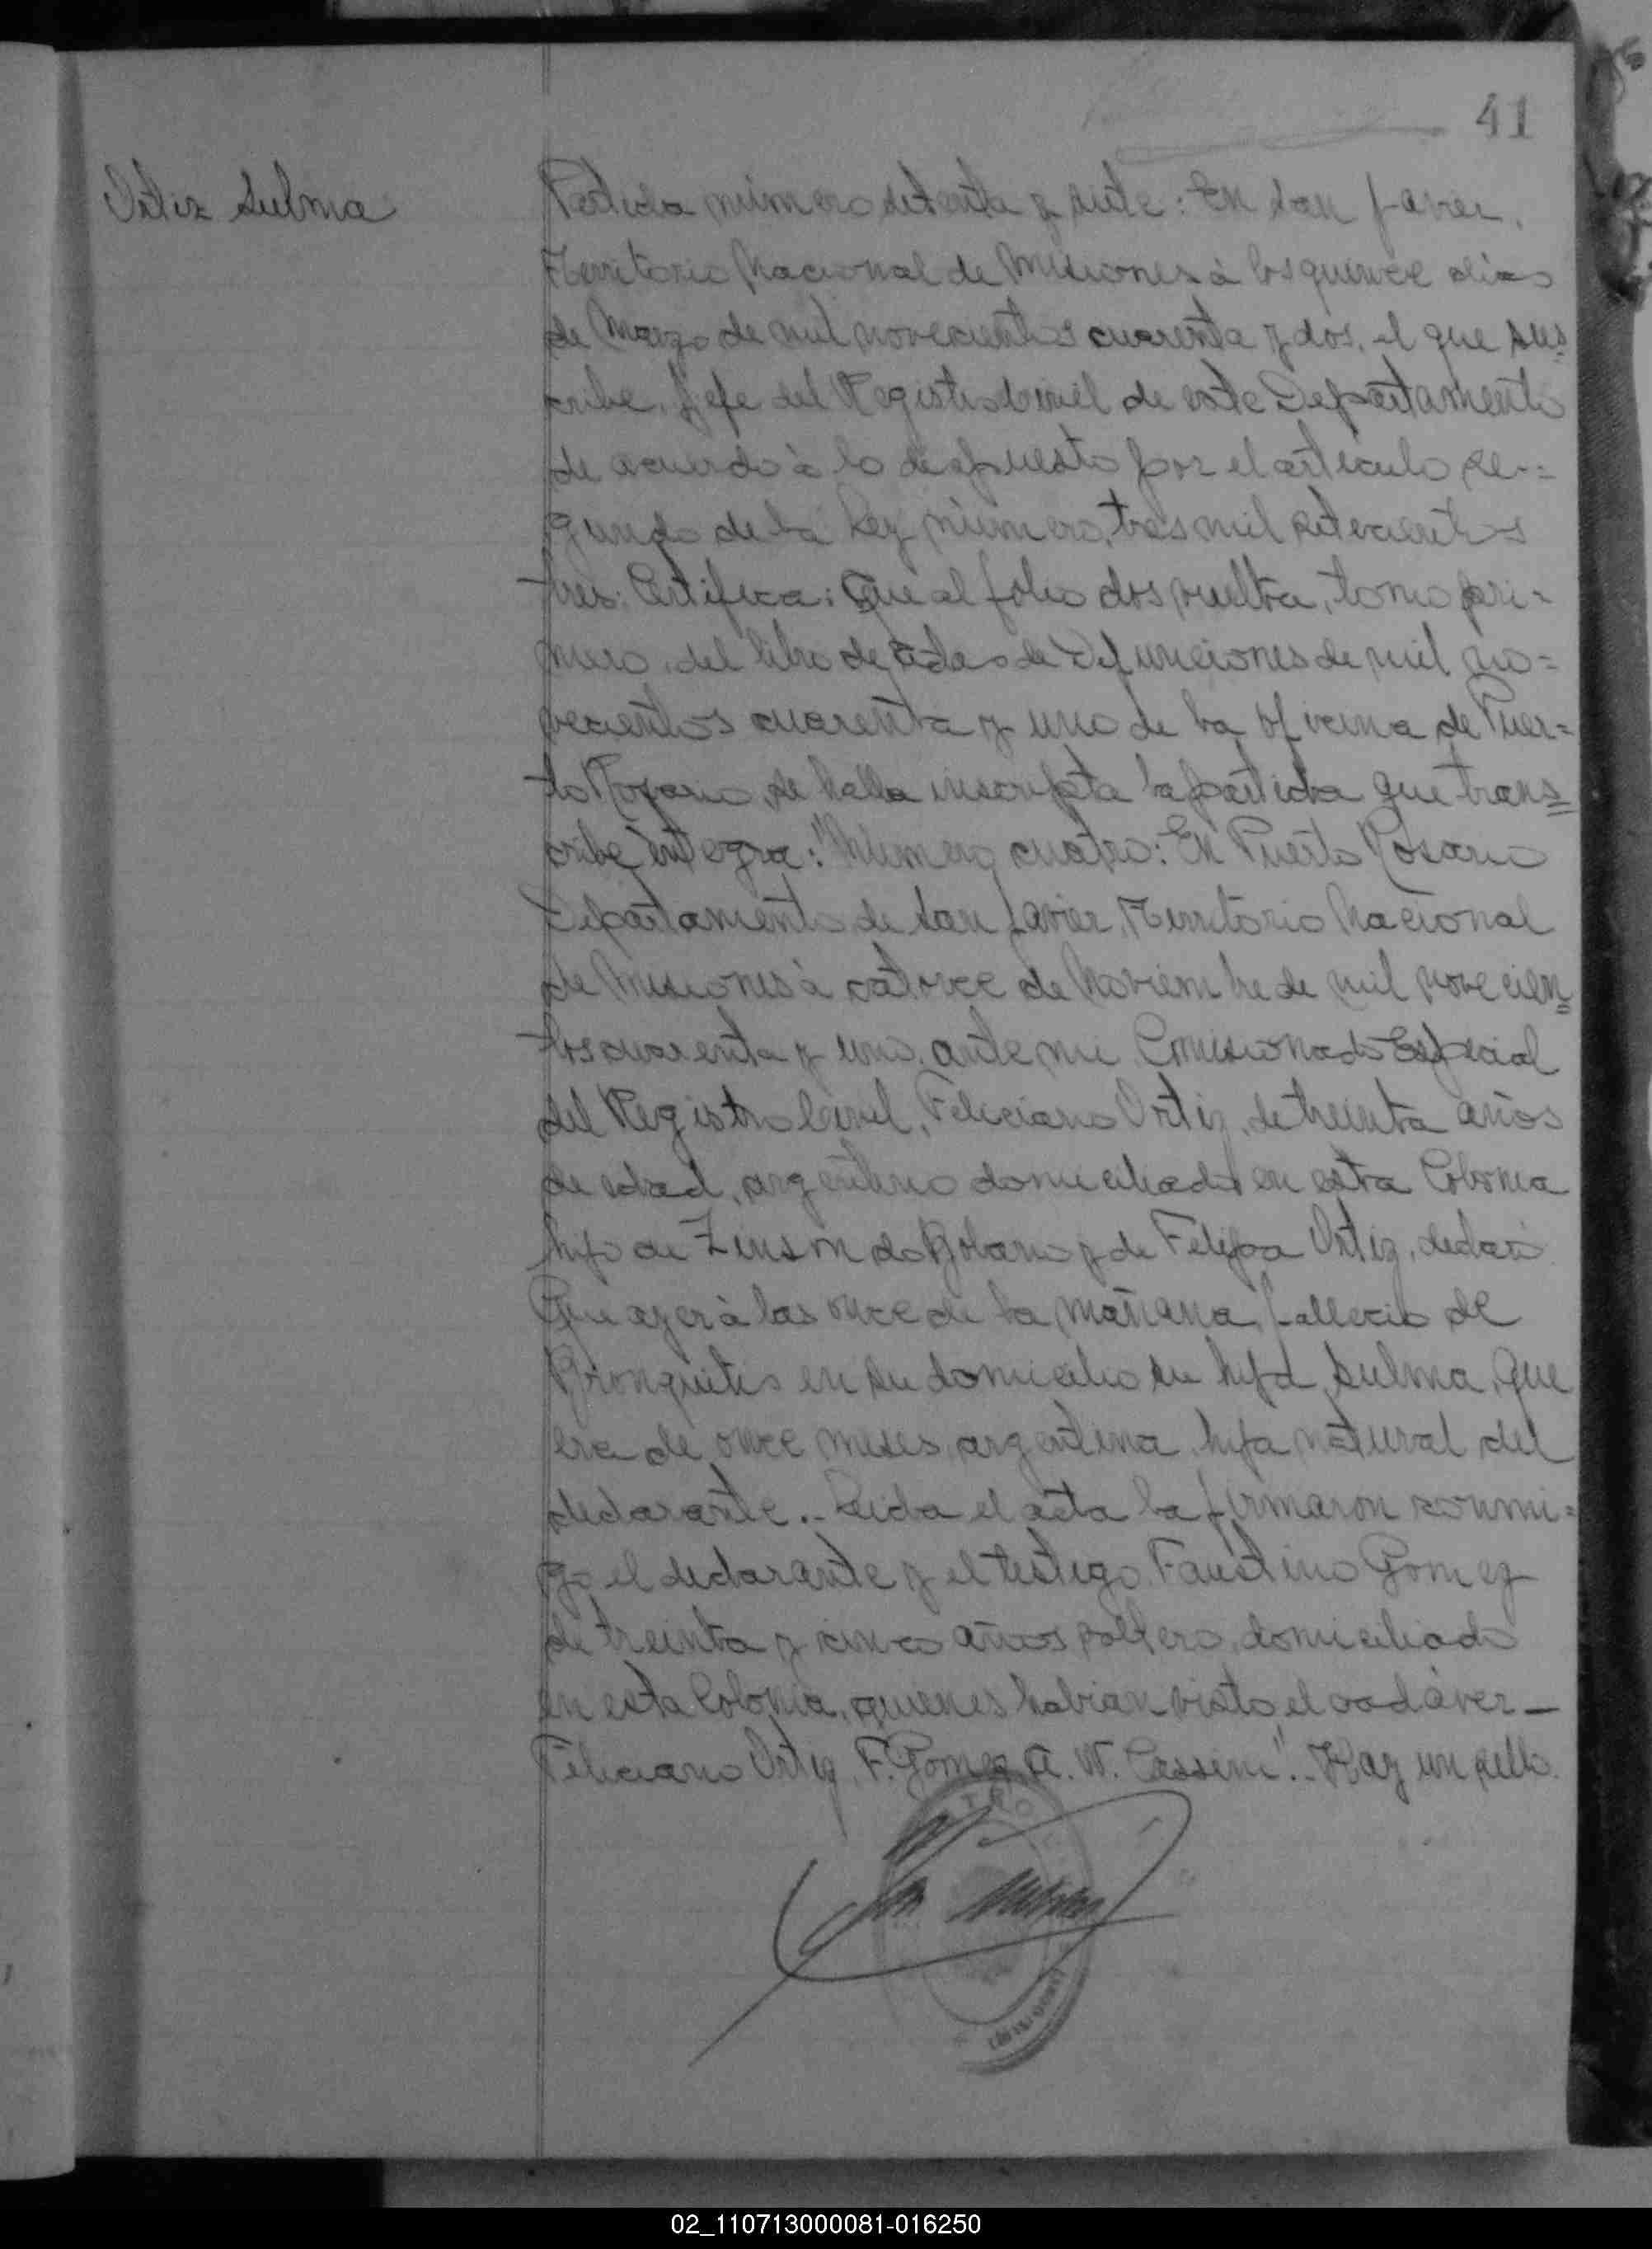 41
Ortiz Sulma
Partida número setenta y siete: En San Javier,
Territorio Nacional de Misiones à los quince dias
de Marzo de mil novecientos cuarenta y dos, el que sus=
cribe, Jefe del Registro Civil de este Departamento
de acuerdo à lo dispuesto por el artículo se-=
gundo de la Ley número, tres mil setecientos
tres: Certifica: Que al folio dos vuelta, tomo pri=
mero, del libro de actas de Defunciones de mil no=
vecientos cuarenta y uno de la oficina de Puer=
to Rosario, se halla inscripta la partida que trans=
cribe íntegra: "Número cuatro: En Puerto Rosario
Departamento de San Javier, Territorio Nacional
de Misiones à catorce de Noviembre de mil novecien=
tos cuarenta y uno, ante mi Comisionado Especial
del Registro Civil, Feliciano Ortiz, de treinta años
de edad, argentino domiciliado en esta Colonia
hijo de y de Felipa Ortiz, declaró
Que ayer à las once de la mañana, fallecio de
Bronquitis en su domicilio su hija Sulma, que
era de once meses, argentina, hija natural del
declarante.- Leida el acta la firmaron conmi=
go el declarante y el testigo Faustino Gomez
de treinta y cinco años soltero, domiciliado
en esta Colonia, quienes habian visto el cadáver-
Feliciano Ortiz, F. Gomez, A. W. Cassini".- Hay un sello.
02_110713000081-016250